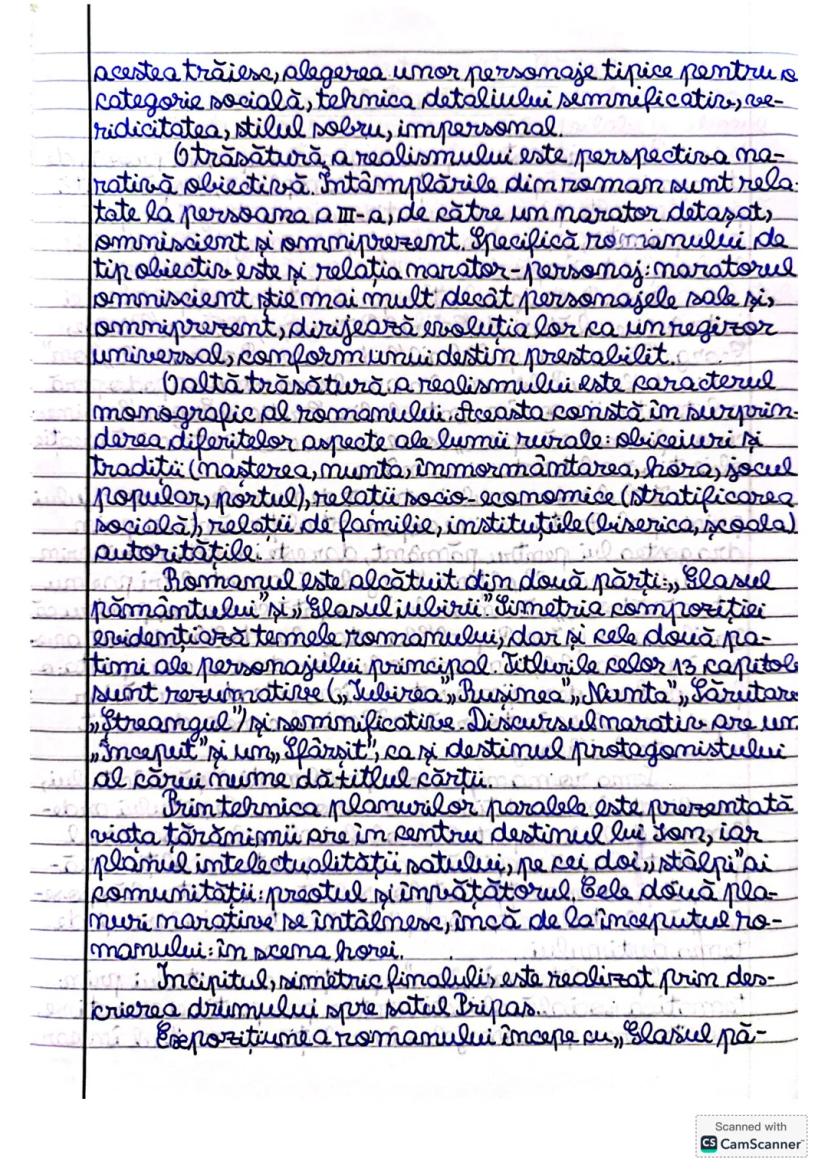 acestea trăiesc, alegerea unor personaje tipice pentru o
categorie socială, tehnica detaliului semnificativ, ve-
ridicitatea, stilul sobru, impersonal.
O trăsătură a realismului este perspectiva na-
rativă obiectivă. Întâmplările din roman sunt rela-
tate la persoana a III-a, de către un narator detașat,
omniscient și omniprezent. Specifică romanului de
tip obiectiv este și relația narator-personaj: naratorul
omniscient știe mai mult decât personajele sale și,
omniprezent, dirijează evoluția lor ca un regizor
universal, conform unui destin prestabilit.
O altă trăsătură a realismului este caracterul
monografic al romanului. Aceasta constă în surprin-
derea diferitelor aspecte ale lumii rurale: obiceiuri și
tradiții (nașterea, nunta, înmormântarea, hora, jocul
popular, portul), relații socio-economice (stratificarea
socială), relații de familie, instituțiile (biserica, școala)
autoritățile.
Romanul este alcătuit din două părți: „Glasul
pământului” și „Glasul iubirii”. Simetria compoziției
evidențiază temele romanului, dar și cele două pa-
timi ale personajului principal. Titlurile celor 13 capitole
sunt rezumative („Iubirea”, „Rușinea”, „Nunta”, „Sărutare
„Ștreangul”) și semnificative. Discursul narativ are un
„Început” și un „Sfârșit”, ca și destinul protagonistului
al cărui nume dă titlul cărții.
Prin tehnica planurilor paralele este prezentată
viața țărănimii are în centru destinul lui Ion, iar
planul intelectualității satului, pe cei doi „stâlpi” ai
comunității: preotul și învățătorul. Cele două pla-
nuri narative se întâlnesc, încă de la începutul ro-
manului: în scena horei.
Incipitul, simetric finalului, este realizat prin des-
crierea drumului spre satul Pripas.
Expozițiunea romanului începe cu „Glasul pă-
Scanned with
CS CamScanner